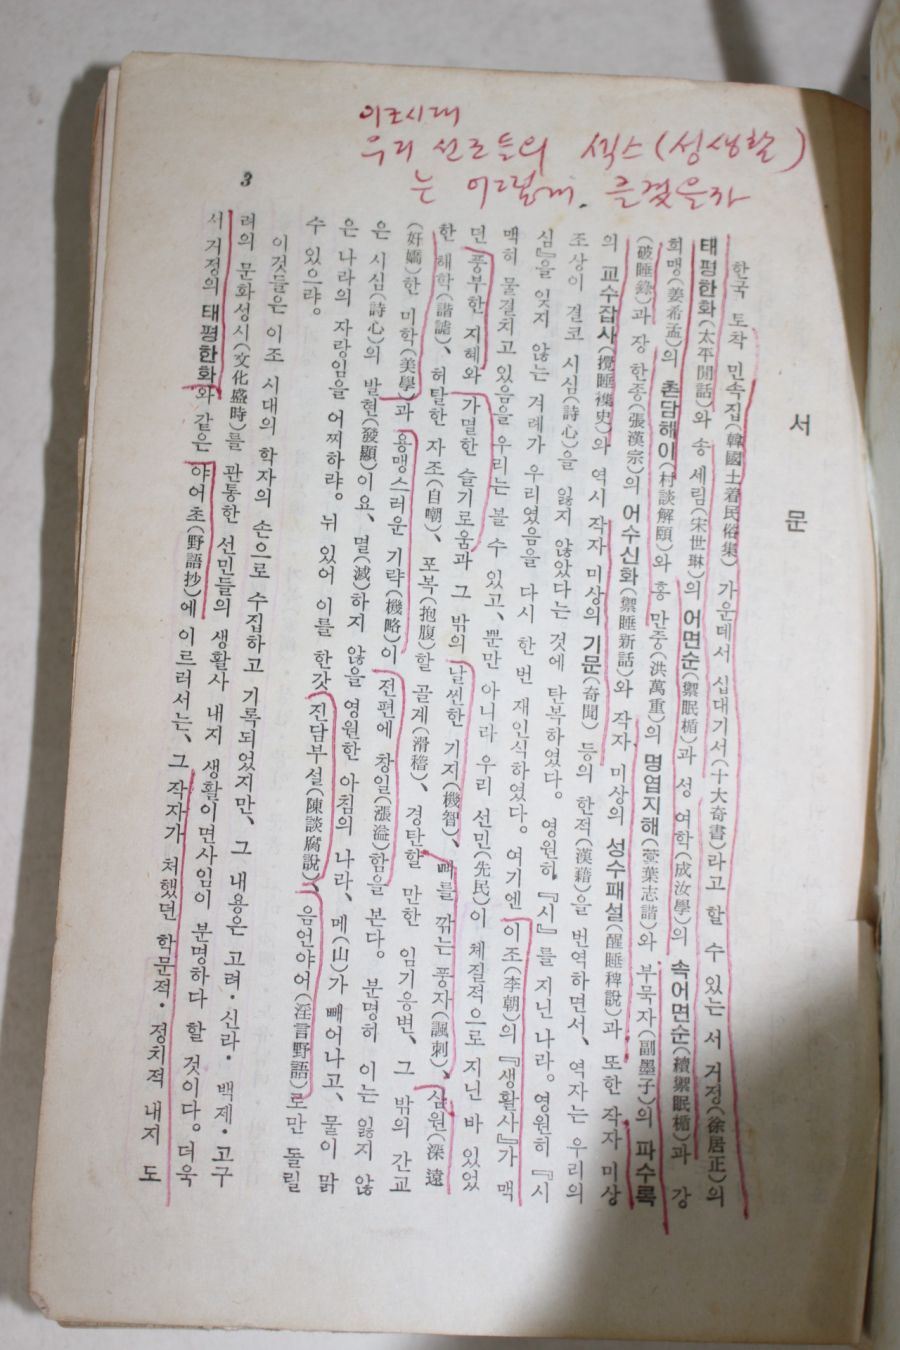 이조시대
우리 선조들의 섹스(성생활)
는 어떻게. 즐겼을까
서 문
한국 토착 민속집(韓國土着民俗集) 가운데서 십대기서(十大奇書)라고 할 수 있는 서 거정(徐居正)의
태평한화(太平閒話)와 송 세림(宋世琳)의 어면순(禦眠楯)과 성 여학(成汝學)의 속어면순(續禦眠楯)과 강
희맹(姜希孟)의 촌담해이(村談解頤)와 홍 만중(洪萬重)의 명엽지해(蓂葉志諧)와 부묵자(副墨子)의 파수록
(破睡錄)과 장 한종(張漢宗)의 어수신화(禦睡新話)와 작자 미상의 성수패설(醒睡稗說)과 또한 작자 미상
의 교수잡사(攪睡襍史)와 역시 작자 미상의 기문(奇聞) 등의 한적(漢籍)을 번역하면서、역자는 우리의
조상이 결코 시심(詩心)을 잃지 않았다는 것에 탄복하였다。 영원히 『시』를 지닌 나라。 영원히 『시
심』을 잊지 않는 겨레가 우리였음을 다시 한 번 재인식하였다。 여기엔 이조(李朝)의 『생활사』가 맥
맥히 물결치고 있음을 우리는 볼 수 있고、뿐만 아니라 우리 선민(先民)이 체질적으로 지닌 바 있었
던 풍부한 지혜와 가멸한 슬기로움과 그 밖의 날씬한 기지(機智)、뼈를 깎는 풍자(諷刺)、심원(深遠)
한 해학(諧謔)、허탈한 자조(自嘲)、포복(抱腹)할 골계(滑稽)、경탄할 만한 임기응변、그 밖의 간교
(奸嬌)한 미학(美學)과 용맹스러운 기략(機略)이 전편에 창일(漲溢)함을 본다。 분명히 이는 잃지 않
은 시심(詩心)의 발현(發顯)이요、멸(滅)하지 않을 영원한 아침의 나라、메(山)가 빼어나고、물이 맑
은 나라의 자랑임을 어찌하랴。 뉘 있어 이를 한갓 진담부설(陳談腐說)、음언야어(淫言野語)로만 돌릴
수 있으랴。
이것들은 이조 시대의 학자의 손으로 수집하고 기록되었지만、그 내용은 고려・신라・백제・고구
려의 문화성시(文化盛時)를 관통한 선민들의 생활사 내지 생활이면사임이 분명하다 할 것이다。더욱
서 거정의 태평한화와 같은 야어초(野語抄)에 이르러서는、그 작자가 처했던 학문적・정치적 내지 도
3